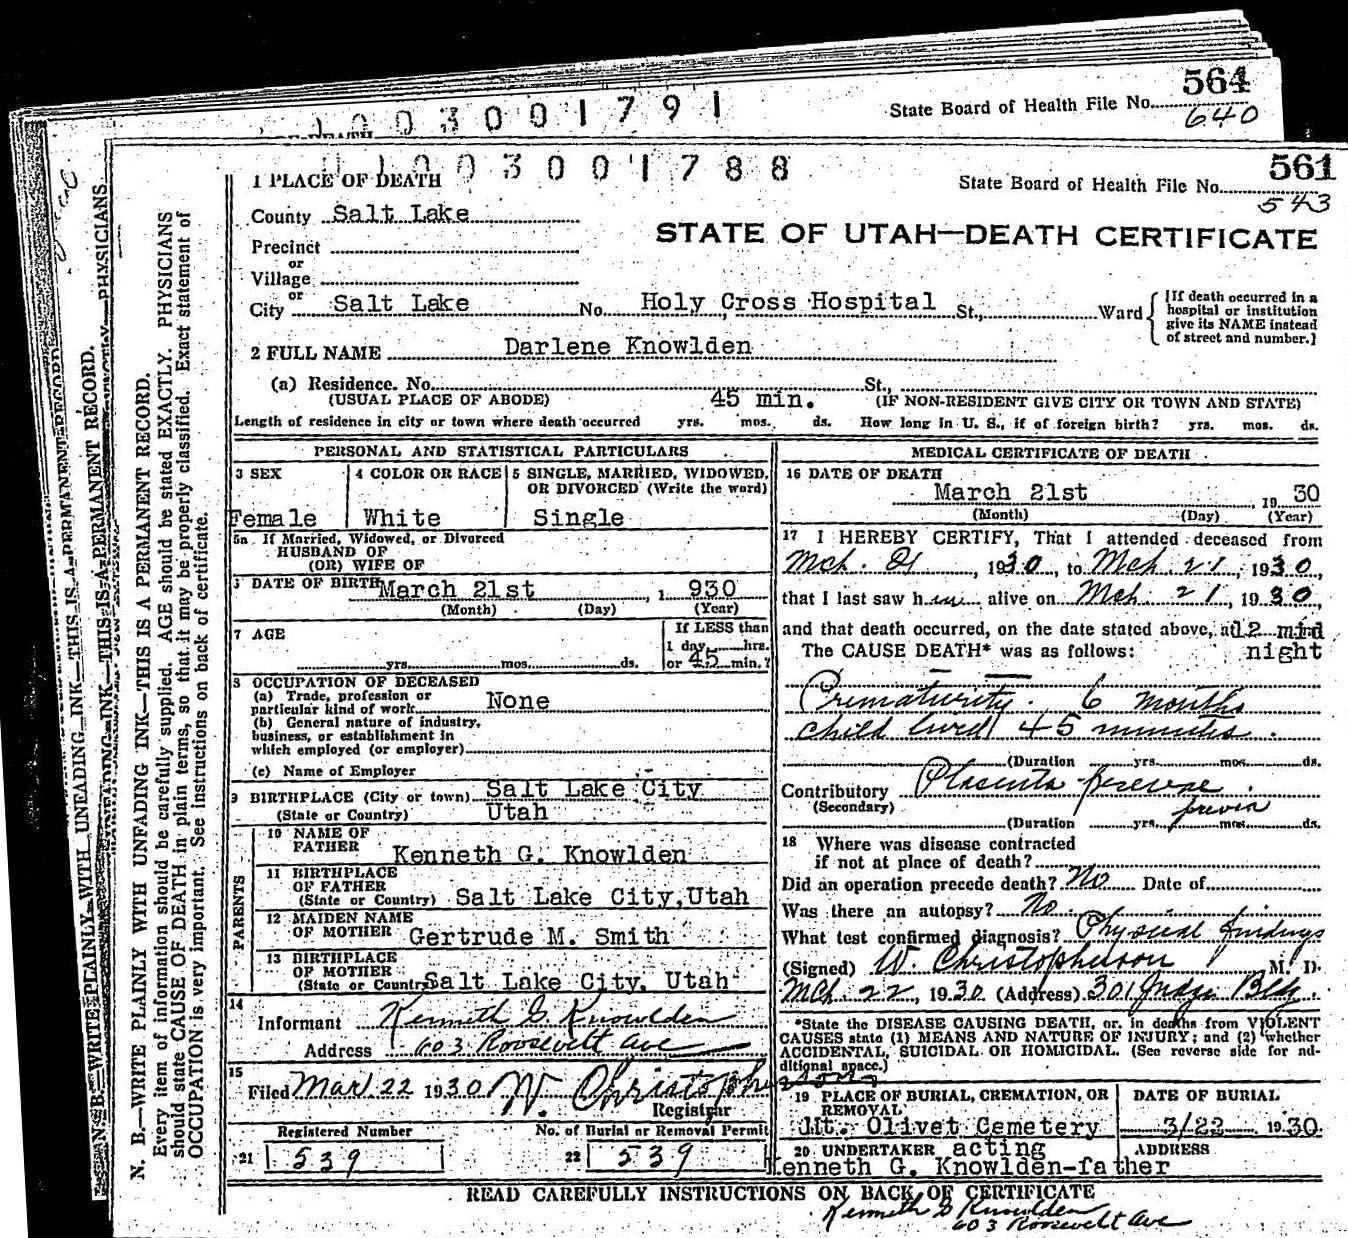 564
State Board of Health File No.
640
1003001791
561
1003001788
State Board of Health File No.
543
1 PLACE OF DEATH
County Salt Lake
STATE OF UTAH—DEATH CERTIFICATE
Precinct
or
Village
or
City Salt Lake No. Holy Cross Hospital St., Ward
[If death occurred in a
hospital or institution
give its NAME instead
of street and number.]
2 FULL NAME Darlene Knowlden
(a) Residence. No. St.,
(USUAL PLACE OF ABODE) 45 min. (IF NON-RESIDENT GIVE CITY OR TOWN AND STATE)
Length of residence in city or town where death occurred yrs. mos. ds. How long in U. S., if of foreign birth? yrs. mos. ds.
PERSONAL AND STATISTICAL PARTICULARS
3 SEX
Female
4 COLOR OR RACE
White
5 SINGLE, MARRIED, WIDOWED,
OR DIVORCED (Write the word)
Single
5a If Married, Widowed, or Divorced
HUSBAND OF
(OR) WIFE OF
DATE OF BIRTH March 21st, 1930
(Month) (Day) (Year)
7 AGE
yrs. mos. ds.
If LESS than
1 day hrs.
or 45 min.?
8 OCCUPATION OF DECEASED
(a) Trade, profession or
particular kind of work None
(b) General nature of industry,
business, or establishment in
which employed (or employer)
(c) Name of Employer
9 BIRTHPLACE (City or town) Salt Lake City
(State or Country) Utah
PARENTS
10 NAME OF
FATHER Kenneth G. Knowlden
11 BIRTHPLACE
OF FATHER
(State or Country) Salt Lake City, Utah
12 MAIDEN NAME
OF MOTHER Gertrude M. Smith
13 BIRTHPLACE
OF MOTHER
(State or Country) Salt Lake City, Utah
14
Informant Kenneth G Knowlden
Address 603 Roosevelt Ave
15
Filed Mar. 22 1930 W. Christopherson
Registrar
Registered Number
21 539
No. of Burial or Removal Permit
22 539
MEDICAL CERTIFICATE OF DEATH
16 DATE OF DEATH
March 21st 1930
(Month) (Day) (Year)
17 I HEREBY CERTIFY, That I attended deceased from
Mch. 21, 1930, to Mch 21, 1930,
that I last saw her alive on Mch. 21, 1930,
and that death occurred, on the date stated above, at 12 mid
The CAUSE DEATH* was as follows: night
Prematurity. 6 months
child lived 45 minutes.
(Duration yrs. mos. ds.
Contributory Placenta
(Secondary) previa
(Duration yrs. mos. ds.
18 Where was disease contracted
if not at place of death?
Did an operation precede death? No Date of
Was there an autopsy? No
What test confirmed diagnosis? Physical findings
(Signed) W Christopherson M. D.
Mch. 22, 1930 (Address) 301 Judge Bldg.
*State the DISEASE CAUSING DEATH, or, in deaths from VIOLENT
CAUSES state (1) MEANS AND NATURE OF INJURY; and (2) whether
ACCIDENTAL, SUICIDAL OR HOMICIDAL. (See reverse side for ad-
ditional space.)
19 PLACE OF BURIAL, CREMATION, OR
REMOVAL
Mt. Olivet Cemetery
DATE OF BURIAL
3/22 1930.
20 UNDERTAKER acting
Kenneth G. Knowlden-father
ADDRESS
READ CAREFULLY INSTRUCTIONS ON BACK OF CERTIFICATE
Kenneth G Knowlden
603 Roosevelt Ave
N. B.—WRITE PLAINLY WITH UNFADING INK—THIS IS A PERMANENT RECORD.
Every item of information should be carefully supplied. AGE should be stated EXACTLY. PHYSICIANS
should state CAUSE OF DEATH in plain terms, so that it may be properly classified. Exact statement of
OCCUPATION is very important. See instructions on back of certificate.